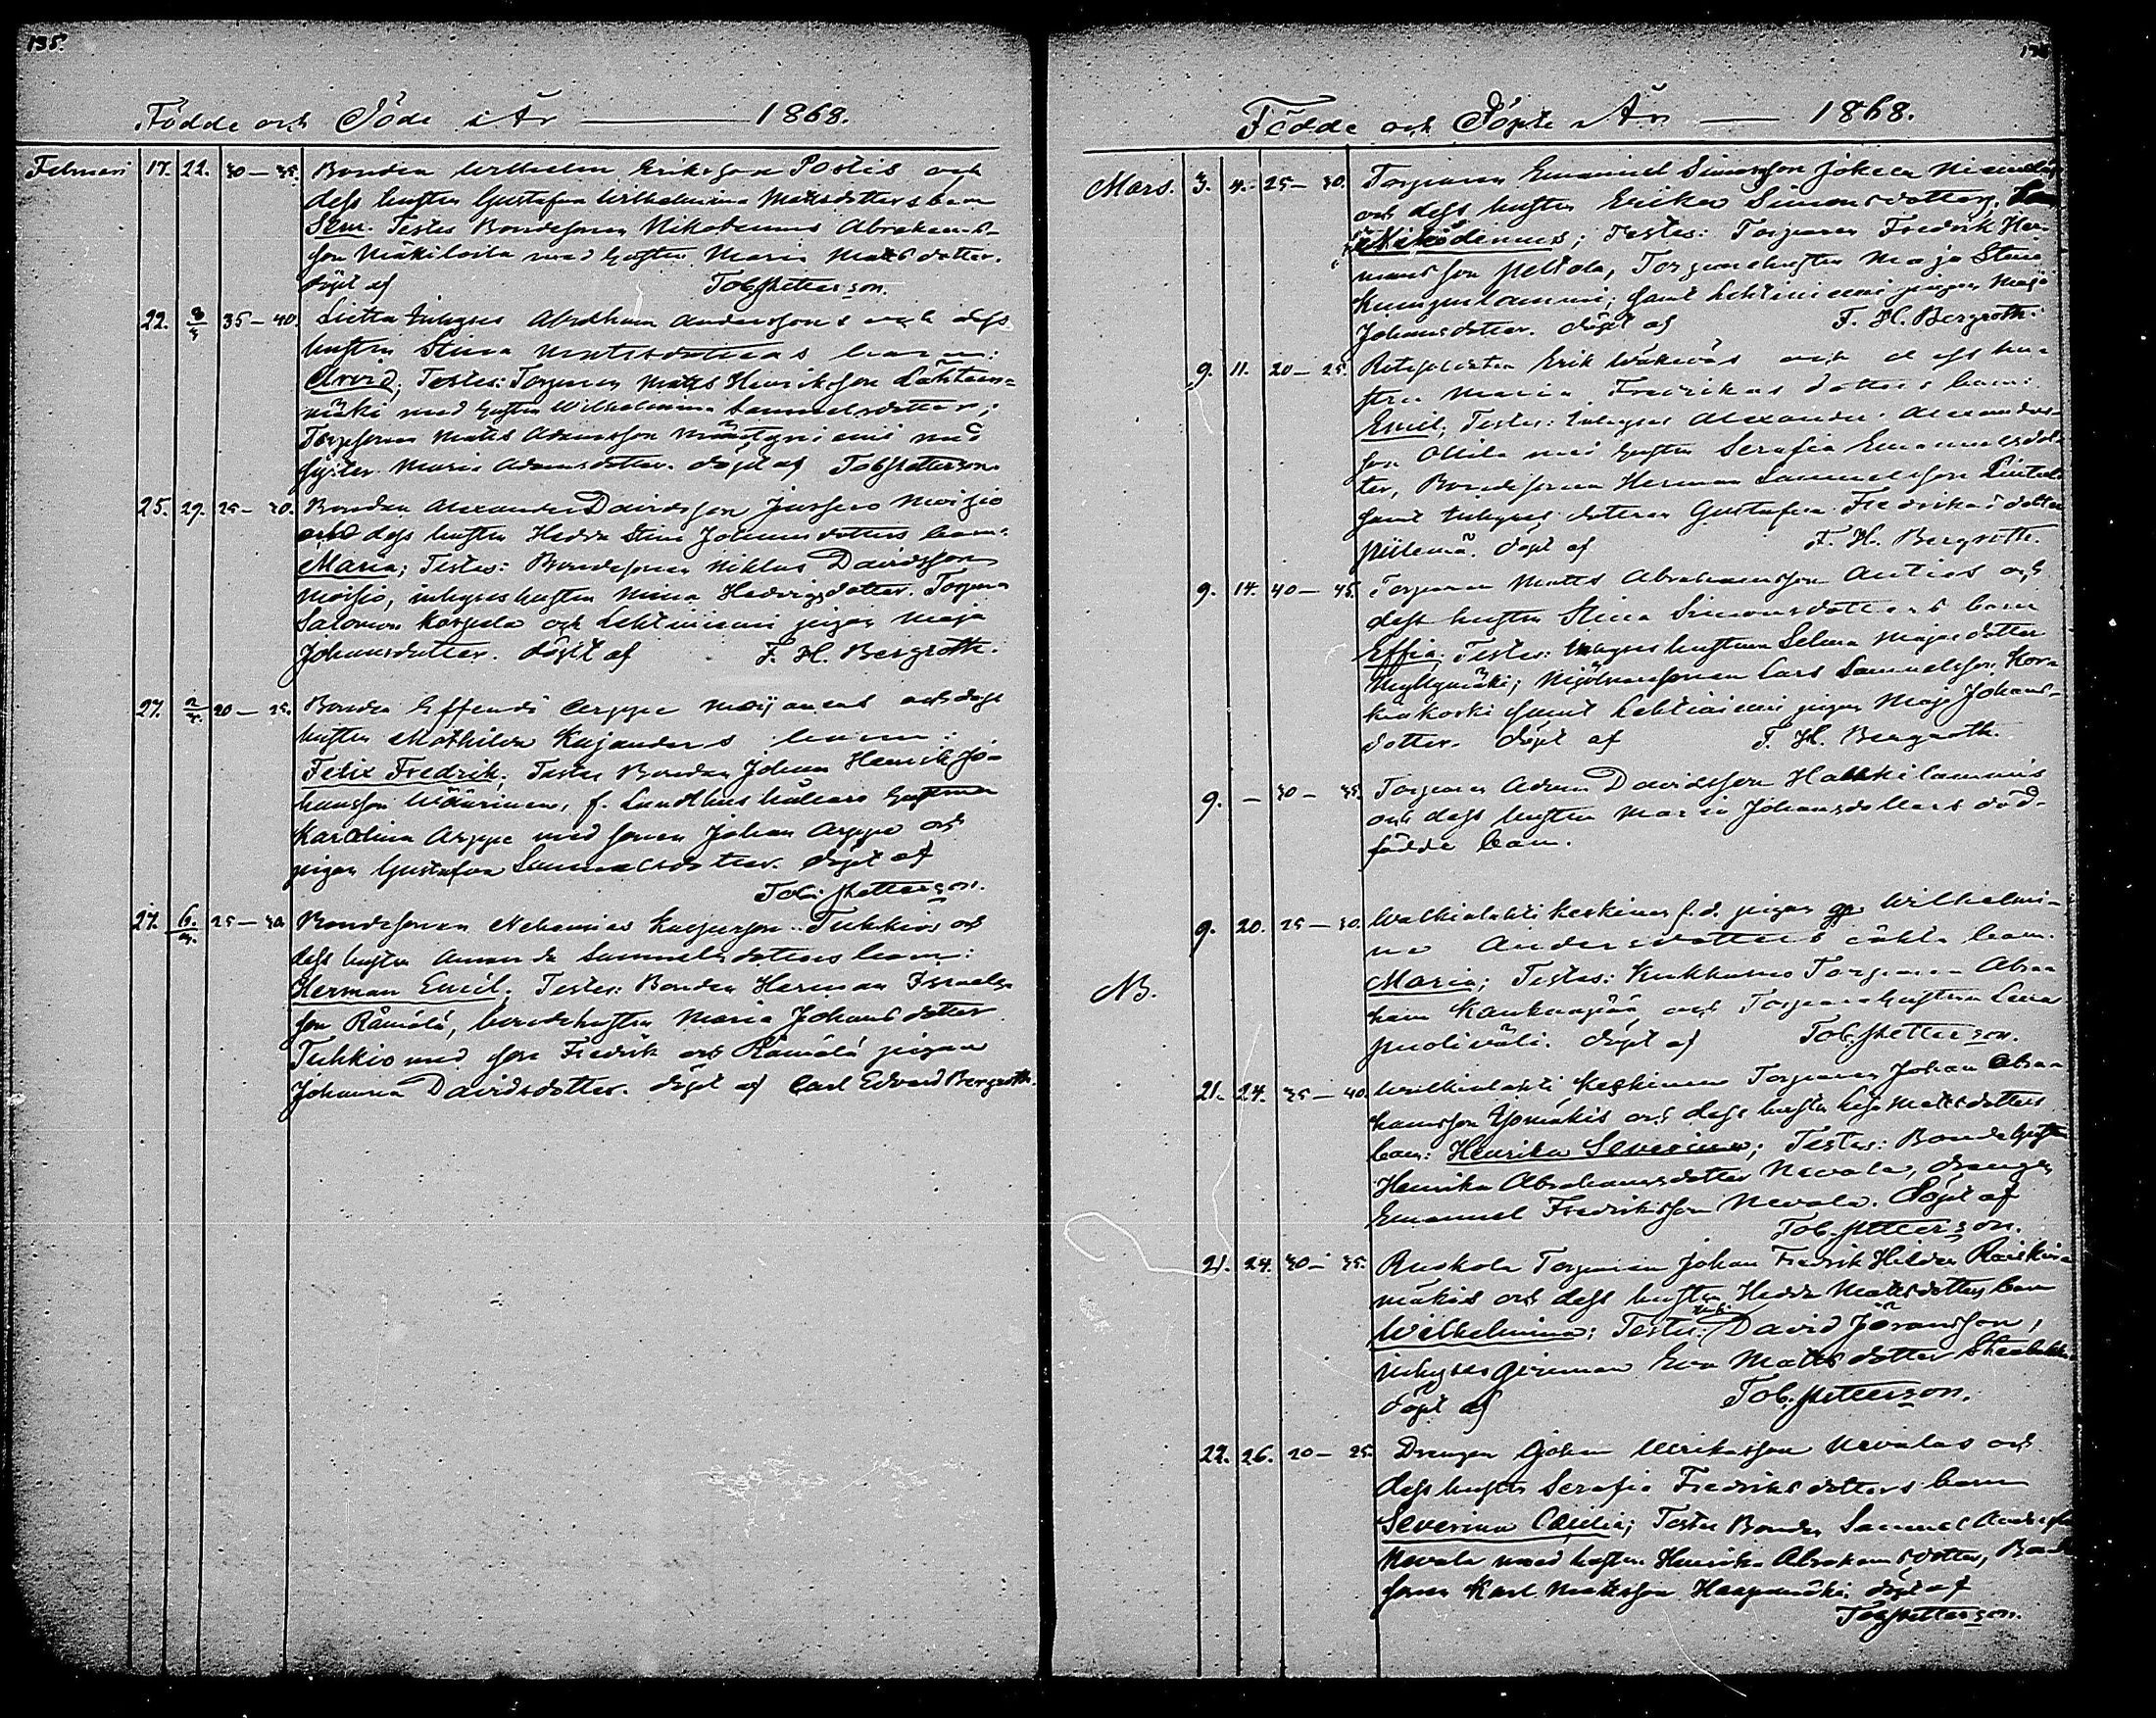 135.
Födde och Döde i År 1868.
Februari 17. 22. 30–35. Bonden Wilhelm Eriksson Postis och
dess hustru Gustafva Wilhelmina Mattsdotters barn
Sem. Testes Bondesonen Nikodemus Abrahams-
son Mäkiloila med hustru Maria Mattsdotter.
döpt af Tob. Petterson.
22. 3/3 35–40. Inhyses Abraham Anderssons och dess
hustru Stina Mattsdotters barn:
Arvid; Testes: Torparen Matts Henriksson Lähteen-
mäki med hustru Wilhelmina Samuelsdotter;
Torpsonen Matts Adamsson med
syster Maria Adamsdotter. döpt af Tob. Petterson.
25. 29. 25–30. Bonden Alexander Davidsson Moisio
och dess hustru Hedda Stina Johansdotters barn:
Maria; Testes: Bondesonen Niklas Davidsson
Moisio, inhyses hustrun Mina Hedvigsdotter. Torparen
Salomon Korpela och Lehtiniemi pigan Maja
Johansdotter. döpt af F. H. Bergroth.
27. 2/3. 20–25. Bonden Effendi Arppe och dess
hustru Mathilda Kajanders barn:
Felix Fredrik; Testes Bonden Johan Henrik Jo-
hansson Määrinen, f. hustrun
Karolina Arppe med sonen Johan Arppe och
pigan Gustafva Samuelsdotter. döpt af
Tob. Petterson.
27. 6/3. 25–30 Bondesonen Nehemias Kaspersson Tuhkios och
dess hustru Amanda Samuelsdotters barn:
Herman Emil; Testes: Bonden Herman Israels-
son Rämälä, bondehustrun Maria Johansdotter
Tuhkio med son Fredrik och Rämälä pigan
Johanna Davidsdotter. döpt af Carl Edvard Bergroth.
Födde och Döpte År 1868.
Mars. 3. 4. 25–30. Torparen Emanuel Simonsson
och dess hustru Erika Simonsdotters
Nikodemus; Testes: Torparen Fredrik Her-
mansson Peltola, Torparehustrun Maja Stina
Kungenlammi; samt Lehtiniemi pigan Maja
Johansdotter. döpt af F. H. Bergroth.
9. 11. 20–25. Erik Wäkeväs och dess hu-
stru Maria Fredrikas dotters barn:
Emil; Testes: Inhyses Alexander Alexanders-
son Ollila med hustru Serafia Emanuelsdot-
ter, Bondesonen Herman Samuelsson
samt Inhyses dottren Gustafva Fredrikas dotter
döpt af F. H. Bergroth.
9. 14. 40–45. Torparen Matts Abrahamsson Anties och
dess hustru Stina Simonsdotters barn
Effia; Testes: Inhyses hustrun Selma Majasdotter
Myllymäki; Mjölnaresonen Lars Samuelsson Kor-
kiakoski samt Lehtiniemi pigan Maja Johans-
dotter. döpt af F. H. Bergroth.
9. – 30–35. Torparen Adam Davidsson Haukilammis
och dess hustru Maria Johansdotters död-
födde barn.
9. 20. 25–30. Walkialahti Keskinen f.d. pigan Wilhelmi-
na Andersdotters oäkta barn
NB. Maria; Testes: Torparen Abra-
ham och Torparehustrun Lena
Puoliväli. döpt af Tob. Petterson.
21. 24. 35–40. Walkialahti Keskinen Torparen Johan Abra-
hamsson och dess hustru Mattsdotters
barn: Henrika Severina; Testes: Bondehustrun
Henrika Abrahamsdotter Nevala, drengen
Emanuel Fredriksson Nevala. Döpt af
Tob. Petterson.
21. 24. 30–35. Ruokola Torparen Johan Fredrik Helder
mäkis och dess hustru Hedda Mattsdotters barn
Wilhelmina; Testes: David Göransson,
inhyses qvinnan Eva Mattsdotter
döpt af Tob. Petterson.
22. 26. 20–25. Drengen Johan Ulrikasson Nevalas och
dess hustru Serafia Fredriksdotters barn
Severina Cæcilia; Testes Bonden Samuel Andersson
Nevala med hustru Henrika Abrahamsdotter, Bonde-
sonen Karl Mattsson Haapamäki döpt af
Tob. Petterson.